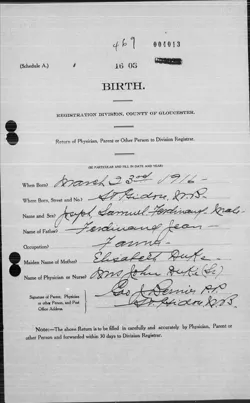 467 004013
(Schedule A.) 16 05
BIRTH.
REGISTRATION DIVISION, COUNTY OF GLOUCESTER.
Return of Physician, Parent or Other Person to Division Registrar.
BE PARTICULAR AND FILL IN DATE AND YEAR:
When Born? March 23rd 1916
Where Born, Street and No.? St Isidore, N.B.
Name and Sex? Joseph Samuel Ferdinand Male
Name of Father? Ferdinand Jean
Occupation? Farmer
Maiden Name of Mother? Elisabeth Duke
Name of Physician or Nurse? Mrs John Duke (Sr)
Signature of Parent, Physician
or other Person, and Post
Office Address
Geo J P.P.
St. Isidore N.B.
NOTE.—The above Return is to be filled in carefully and accurately by Physician, Parent or
other Person and forwarded within 30 days to Division Registrar.